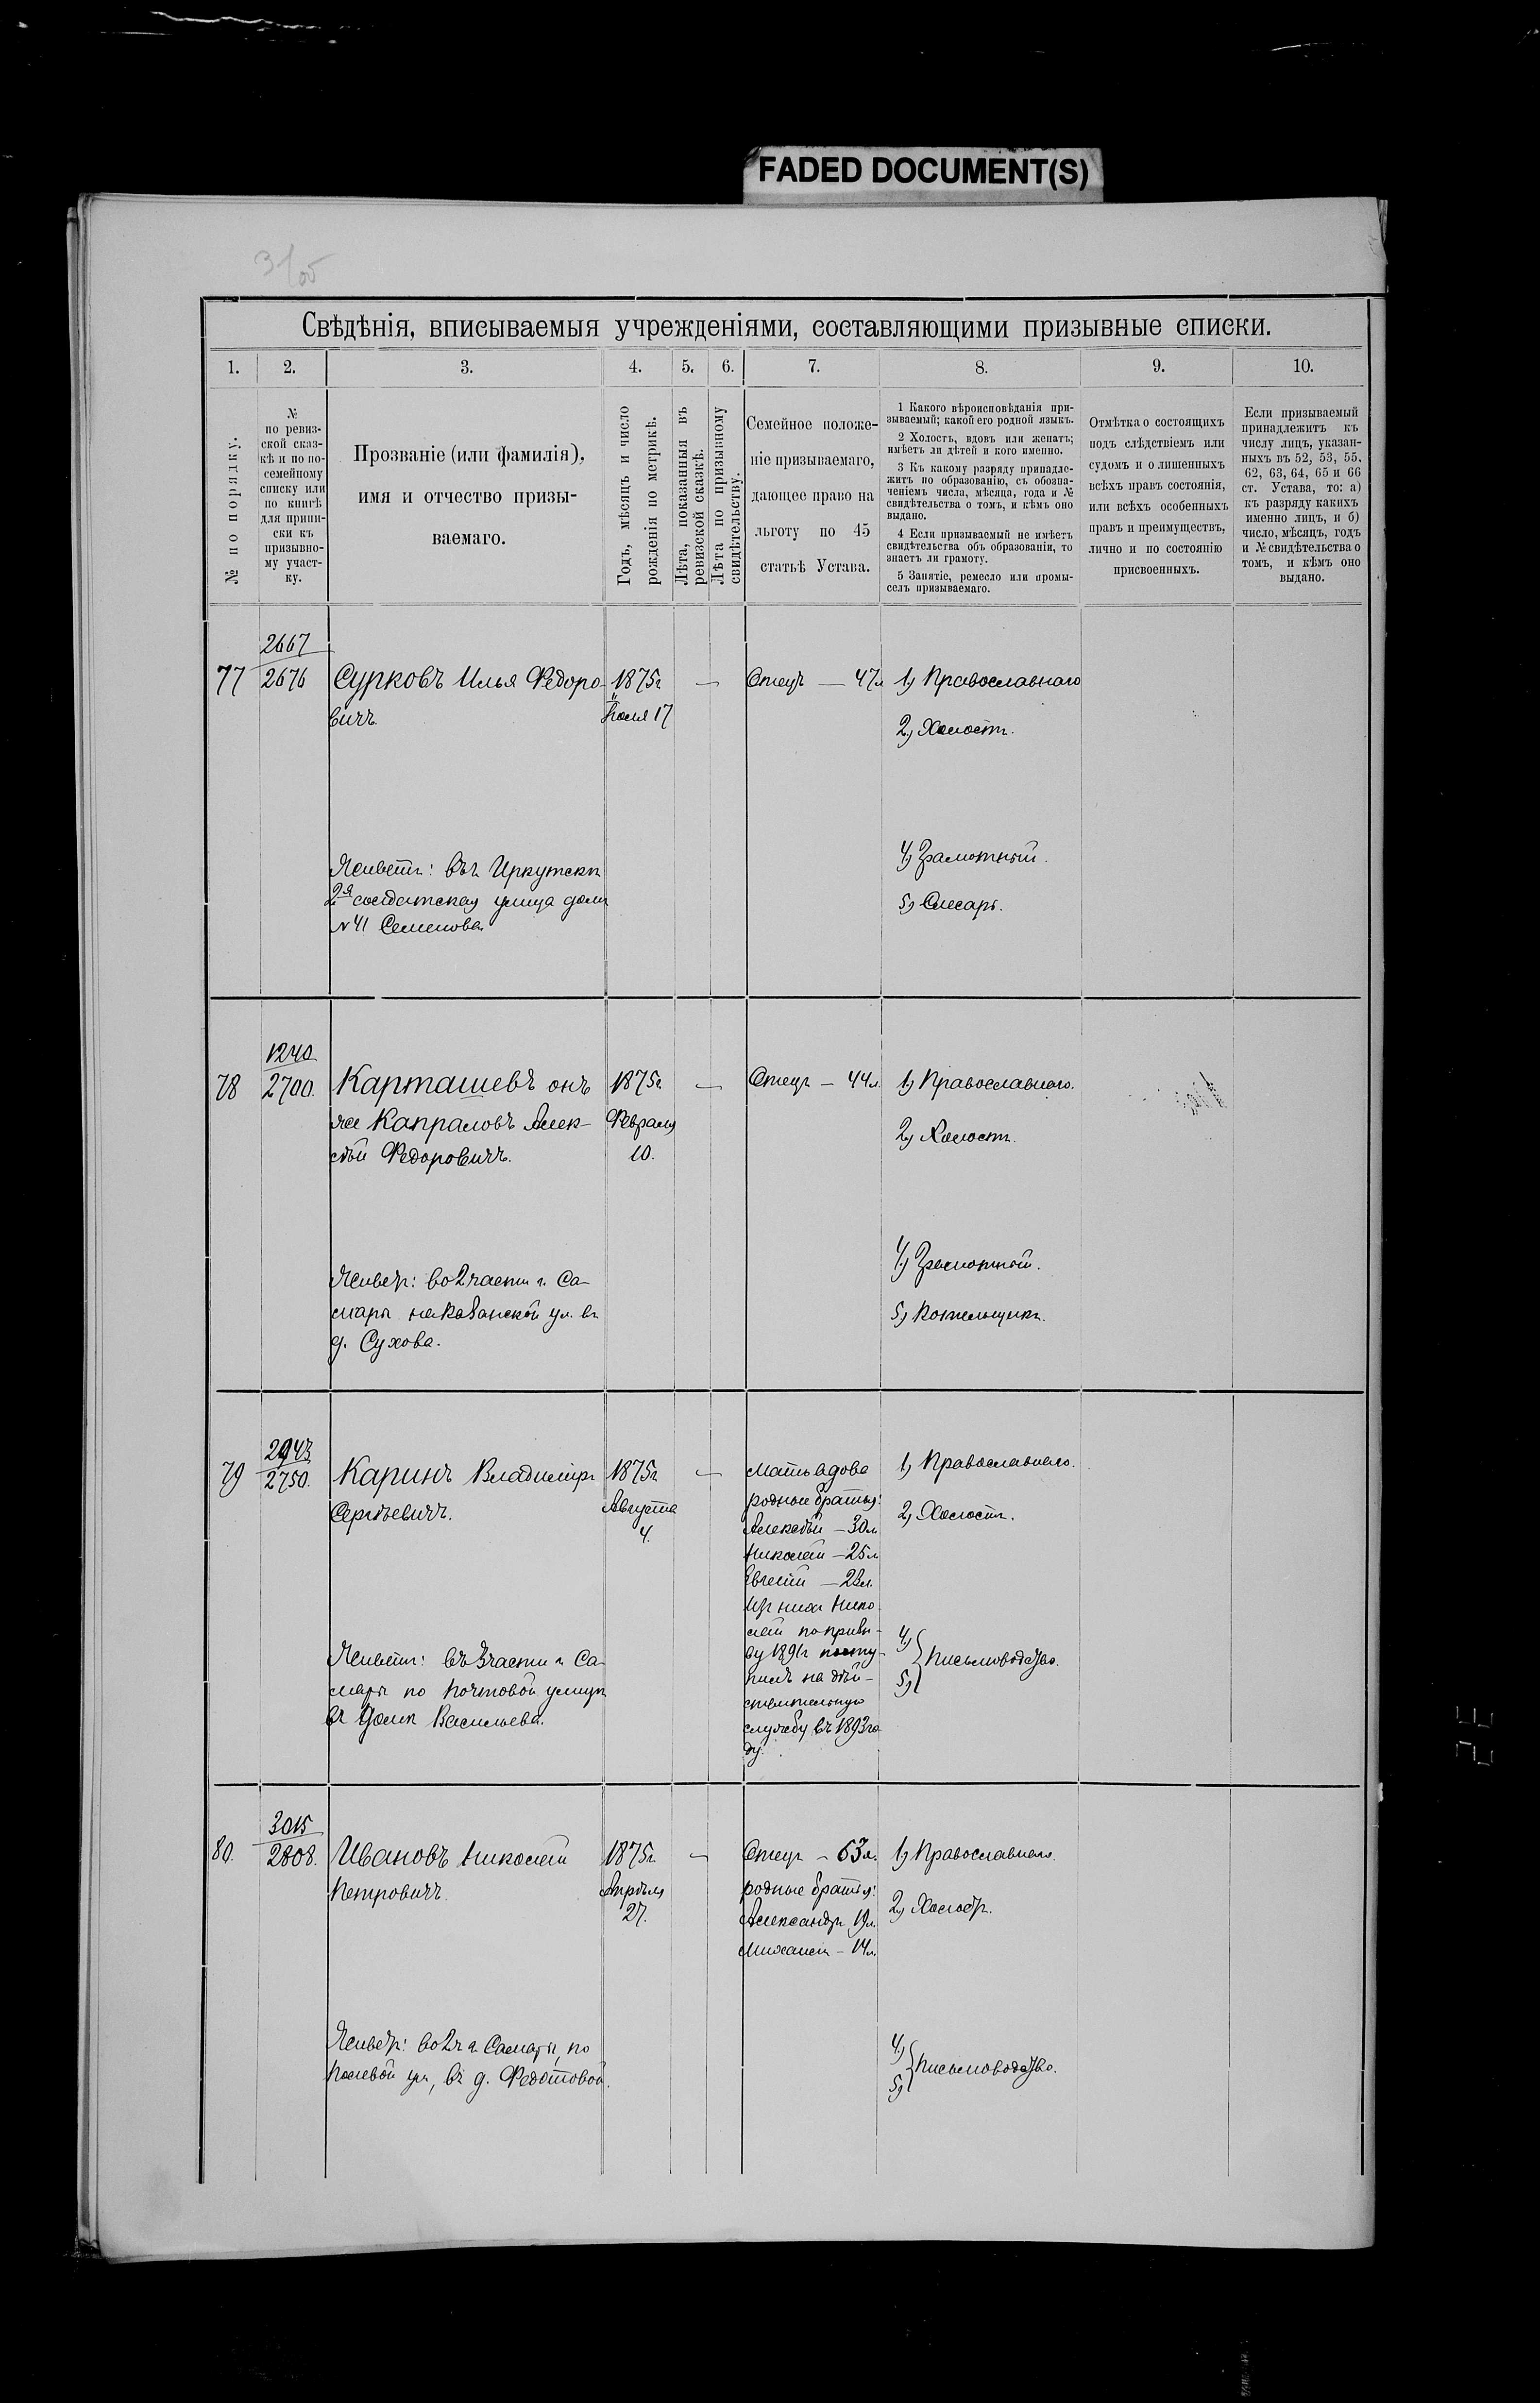 FADED DOCUMENT(S)
31об
Свѣдѣнія, вписываемыя учрежденіями, составляющими призывные списки.
1. 2. 3. 4. 5. 6. 7. 8. 9. 10.
№ по порядку.
№
по ревиз-
ской сказ-
кѣ и по по-
семейному
списку или
по книгѣ
для припи-
ски къ
призывно-
му участ-
ку.
Прозваніе (или фамилія),
имя и отчество призы-
ваемаго.
Годъ, мѣсяцъ и число
рожденія по метрикѣ.
Лѣта, показанныя въ
ревизской сказкѣ.
Лѣта по призывному
свидѣтельству.
Семейное положе-
ніе призываемаго,
дающее право на
льготу по 45
статьѣ Устава.
1 Какого вѣроисповѣданія при-
зываемый; какой его родной языкъ.
2 Холостъ, вдовъ или женатъ;
имѣетъ ли дѣтей и кого именно.
3 Къ какому разряду принадле-
житъ по образованію, съ обозна-
ченіемъ числа, мѣсяца, года и №
свидѣтельства о томъ, и кѣмъ оно
выдано.
4 Если призываемый не имѣетъ
свидѣтельства объ образованіи, то
знаетъ ли грамоту.
5 Занятіе, ремесло или промы-
селъ призываемаго.
Отмѣтка о состоящихъ
подъ слѣдствіемъ или
судомъ и о лишенныхъ
всѣхъ правъ состоянія,
или всѣхъ особенныхъ
правъ и преимуществъ,
лично и по состоянію
присвоенныхъ.
Если призываемый
принадлежитъ къ
числу лицъ, указан-
ныхъ въ 52, 53, 55,
62, 63, 64, 65 и 66
ст. Устава, то: а)
къ разряду какихъ
именно лицъ, и б)
число, мѣсяцъ, годъ
и № свидѣтельства о
томъ, и кѣмъ оно
выдано.
77
2667
2676
Сурковъ Илья Федоро-
вичъ.
Живетъ: въ г. Иркутскѣ
2я солдатская улица домъ
№ 41 Семенова.
1875г.
Іюля 17
—
Отецъ — 47л
1) Православнаго
2) Холостъ.
4) Грамотный.
5) Слесарь.
78
1240
2700.
Карташевъ онъ
же Капраловъ Алек-
сѣй Федоровичъ.
Живетъ: во 2 части г. Са-
мары на Казанской ул. въ
д. Сухова.
1875г.
Февраля
10.
—
Отецъ — 44л.
1) Православнаго.
2) Холостъ.
4) Грамотный.
5) Котельщикъ.
79
2943
2750.
Каринъ Владиміръ
Сергѣевичъ.
Живетъ: въ 3 части г. Са-
мары по Почтовой улицѣ
въ домѣ Васильева.
1875г.
Августа
4.
—
Мать вдова
родные братья:
Алексѣй — 30л
Николай — 25л
Евгеній —
Изъ нихъ Нико-
лай по призы-
ву 1891г посту-
пилъ на дѣй-
ствительную
службу въ 1893го-
ду.
1) Православнаго.
2) Холостъ.
4)
5) Письмоводство.
80.
3015
2808.
Ивановъ Николай
Петровичъ.
Живетъ: во 2 ч. г. Самары, по
Полевой ул, въ д. Федотовой.
1875г.
Апрѣля
27.
—
Отецъ — 63л.
родные братья:
Александръ 19л.
Михаилъ — 14л.
1) Православнаго.
2) Холостъ.
4)
5) Письмоводство.